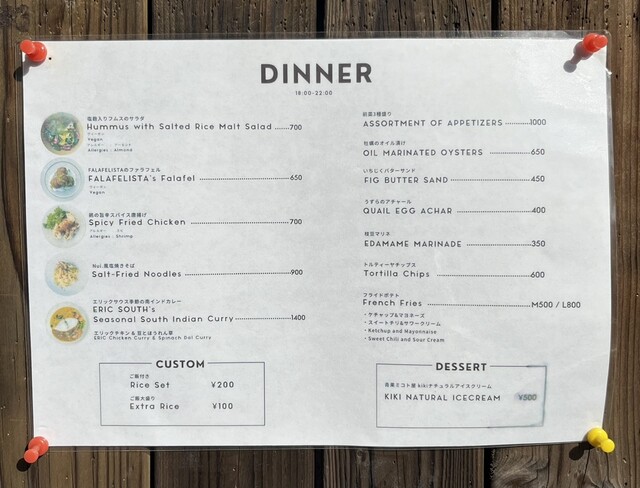 DINNER
18:00-22:00
塩麹入りフムスのサラダ
Hummus with Salted Rice Malt Salad ......700
ヴィーガン
Vegan
アレルギー：アーモンド
Allergies : Almond
FALAFELISTAのファラフェル
FALAFELISTA's Falafel ......650
ヴィーガン
Vegan
鶏の旨辛スパイス唐揚げ
Spicy Fried Chicken ......700
Allergies : Shrimp
Nui.風塩焼きそば
Salt-Fried Noodles ......900
エリックサウス季節の南インドカレー
ERIC SOUTH's
Seasonal South Indian Curry ......1400
エリックチキン & 豆とほうれん草
ERIC Chicken Curry & Spinach Dal Curry
CUSTOM
ご飯付き
Rice Set ¥200
ご飯大盛り
Extra Rice ¥100
前菜3種盛り
ASSORTMENT OF APPETIZERS ......1000
牡蠣のオイル漬け
OIL MARINATED OYSTERS ......650
いちじくバターサンド
FIG BUTTER SAND ......450
うずらのアチャール
QUAIL EGG ACHAR ......400
枝豆マリネ
EDAMAME MARINADE ......350
トルティーヤチップス
Tortilla Chips ......600
フライドポテト
French Fries ......M500 / L800
・ケチャップ&マヨネーズ
・スイートチリ&サワークリーム
・Ketchup and Mayonnaise
・Sweet Chili and Sour Cream
DESSERT
青果ミコト屋 kikiナチュラルアイスクリーム
KIKI NATURAL ICECREAM ¥500